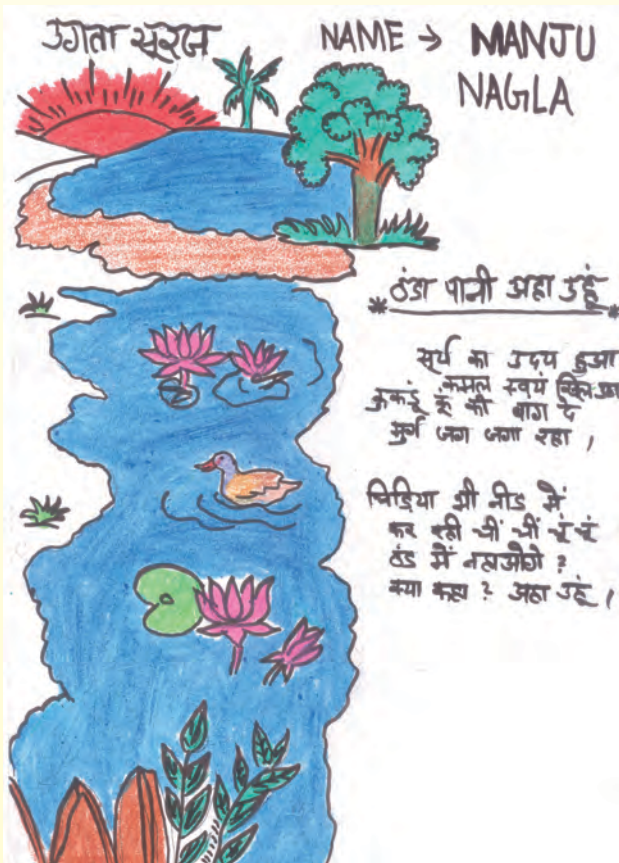 उगता सूरज
NAME → MANJU
NAGLA
* ठंडा पानी अहा उहूं *
सूर्य का उदय हुआ
कमल स्वयं खिल उठा
कुकड़ूं कूं की बाग दे
मुर्गा जग जगा रहा,
चिड़िया भी नीड में
कर रही चीं चीं चूं चूं
ठंड में नहाओगे?
क्या कहा? अहा उहूं,